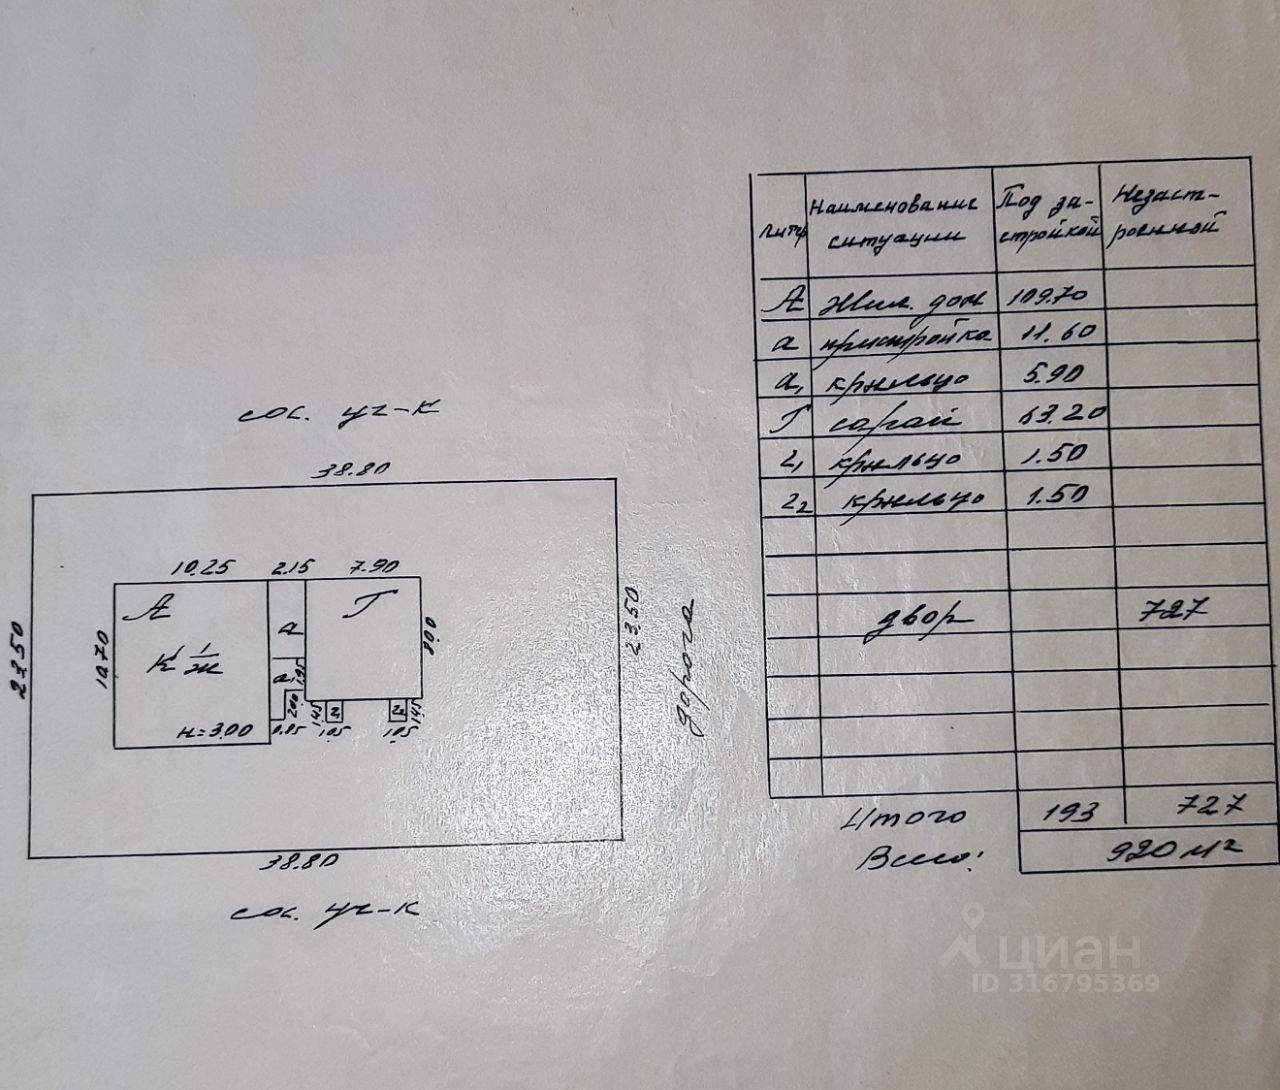 сос. уч-к
38.80
10.25 2.15 7.90
А а Г
23.50 10.70 8.00 23.50
К 1/ж
а₁ 1.95
н=3.00
2.00 0.85
1.45 г₁ 1.05
г₂ 1.45 1.05
дорога
38.80
сос. уч-к
литер Наименование ситуации Под за-стройкой Незаст-роенной
А жил. дом 109.70
а пристройка 11.60
а₁ крыльцо 5.90
Г сарай 63.20
г₁ крыльцо 1.50
г₂ крыльцо 1.50
двор 727
Итого 193 727
Всего: 920 м²
циан
ID 316795369